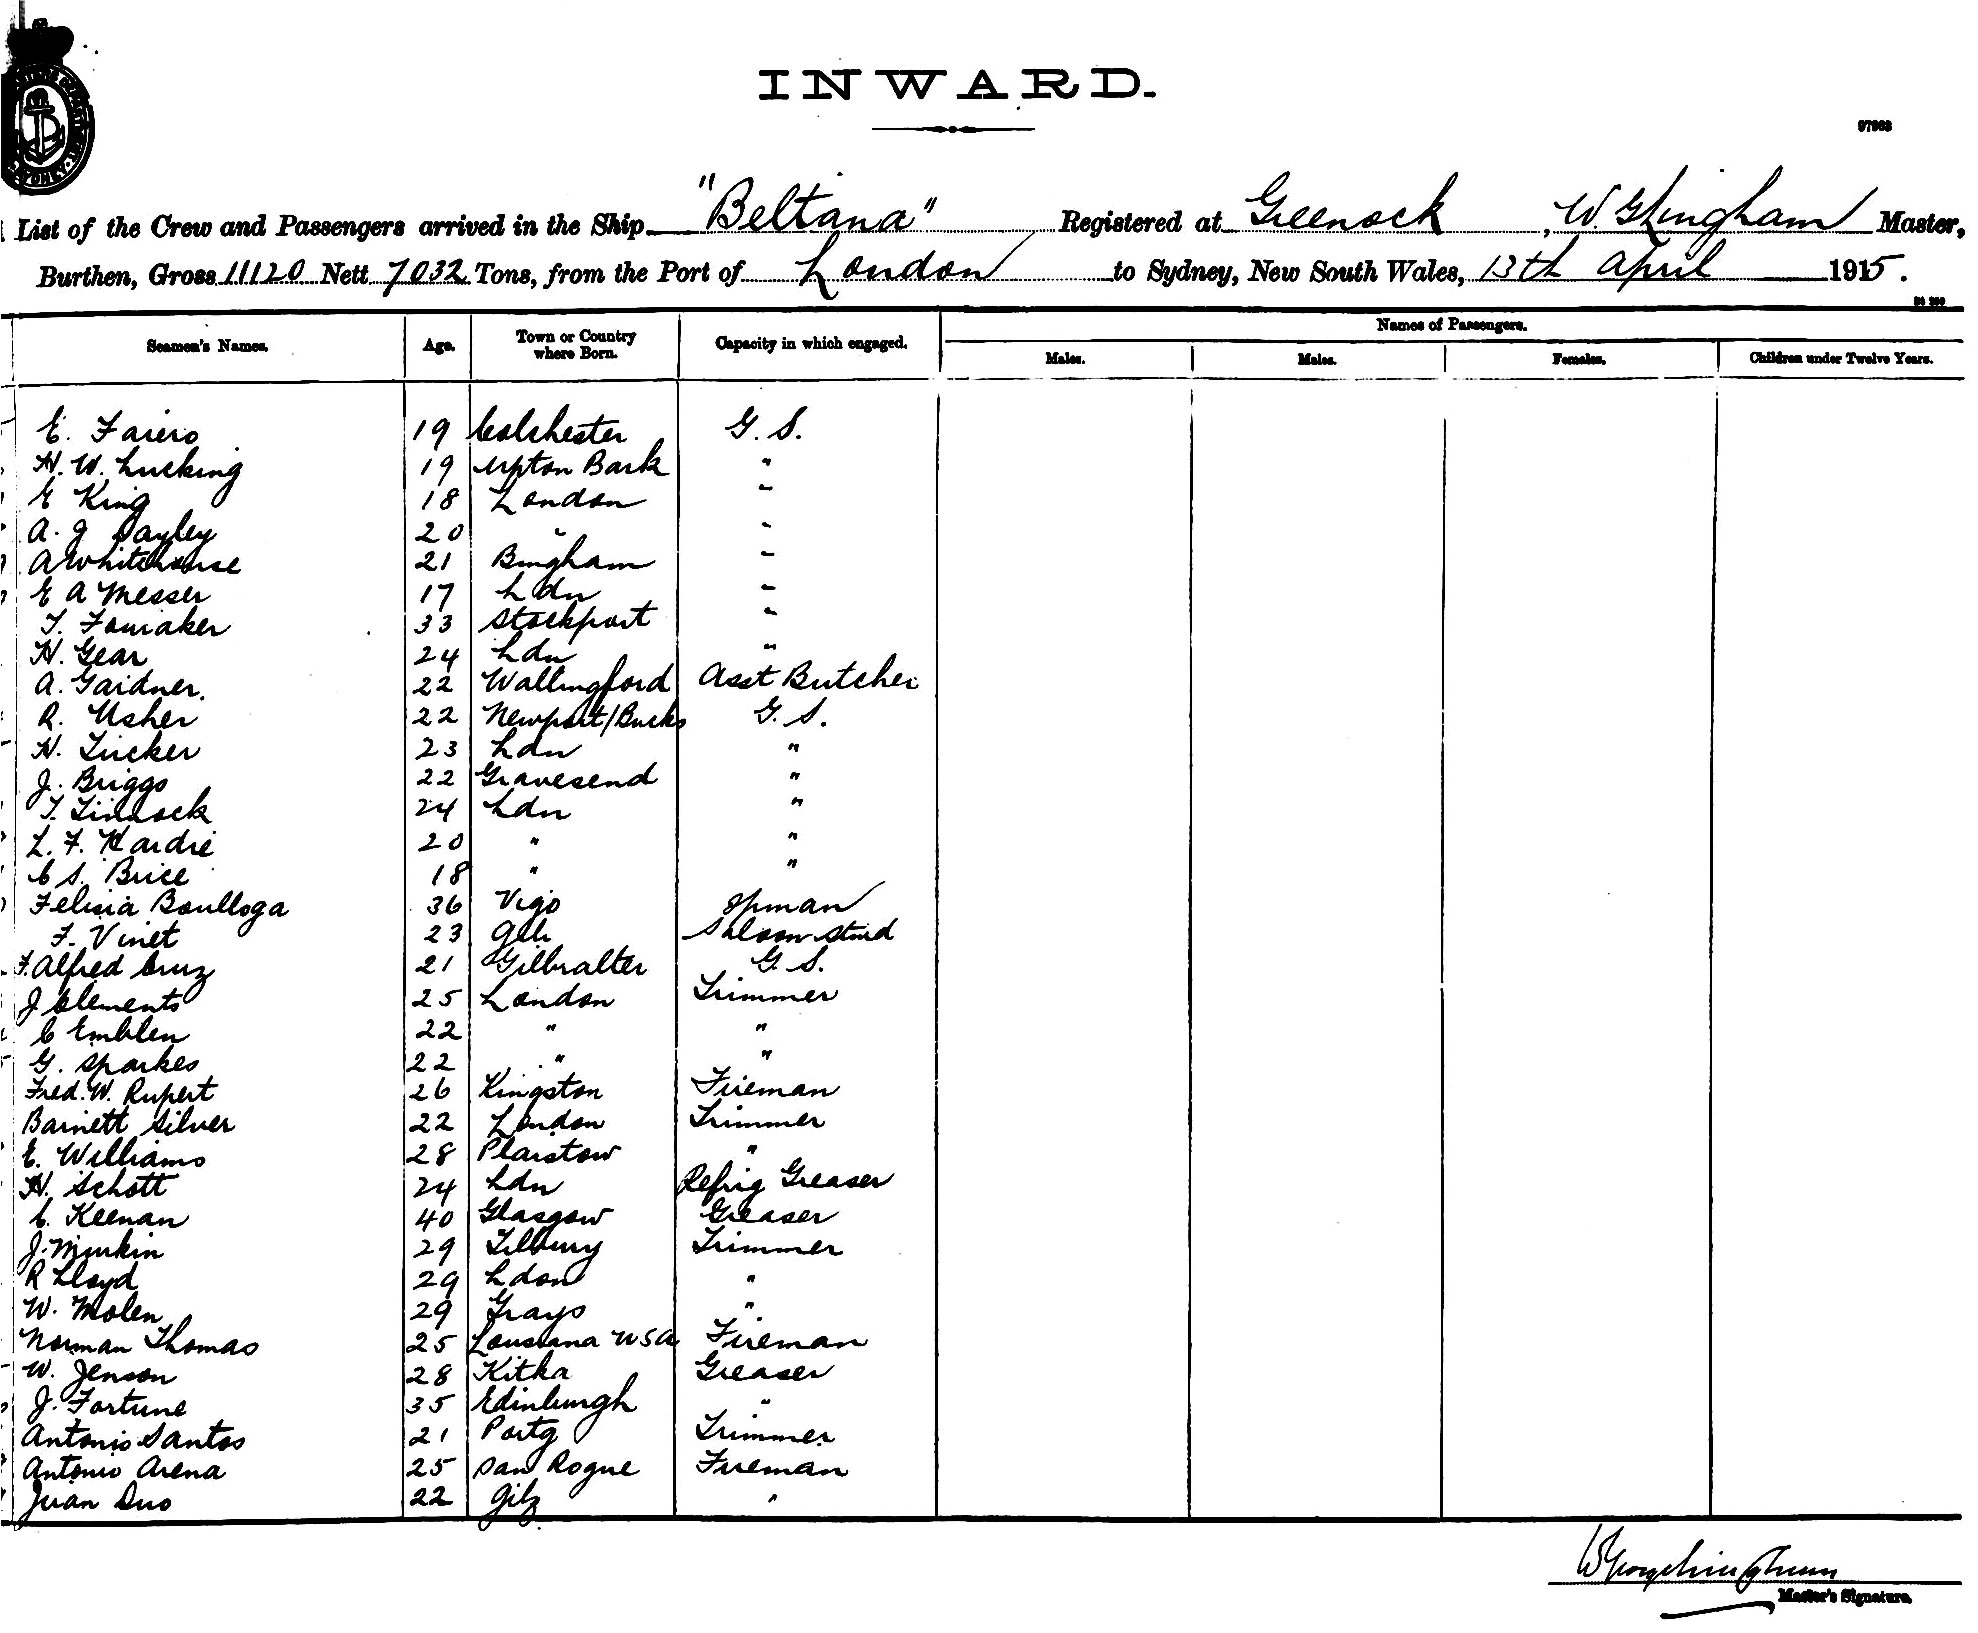 INWARD.
97963
List of the Crew and Passengers arrived in the Ship "Beltana" Registered at Greenock, W. G. Lingham Master,
Burthen, Gross 11120 Nett 7032 Tons, from the Port of London to Sydney, New South Wales, 13th April 1915.
Seamen's Names. Age. Town or Country where Born. Capacity in which engaged. Names of Passengers.
Males. Males. Females. Children under Twelve Years.
E. Faiers 19 Colchester G. S.
H. W. Lucking 19 Upton Park "
E King 18 London "
A. G Bayley 20 " "
A Whitehouse 21 Bingham "
E A Messer 17 Ldn "
T. 33 Stockport "
H. Gear 24 Ldn "
A. Gardner. 22 Wallingford Asst Butcher
R. Usher 22 Newport/Bucks G. S.
H. Tucker 23 Ldn "
J. Briggs 22 Gravesend "
T. Tinnock 24 Ldn "
L. F. Hardie 20 " "
C S. Brice 18 " "
Felisia Boulloga 36 Vigo
F. Vinet 23 Gib Saloon Stwd
F. Alfred Cruz 21 Gilbralter G. S.
J Clements 25 London Trimmer
C Emblen 22 " "
G. Sparkes 22 " "
Fred. W. Rupert 26 Kingston Fireman
Barnett Silver 22 London Trimmer
E. Williams 28 Plaistow "
H. Schott 24 Ldn Refrig Greaser
C. Keenan 40 Glasgow Greaser
J. Murkin 29 Tilbury Trimmer
R Lloyd 29 Ldon "
W. Molen 29 Grays "
Norman Thomas 25 Lousiana USA Fireman
W. Jenson 28 Kitka Greaser
J. Fortune 35 Edinburgh "
Antonio Santos 21 Portg Trimmer
Antonio Arena 25 San Rogue Fireman
Juan Duo 22 Gilz "
Master's Signature.